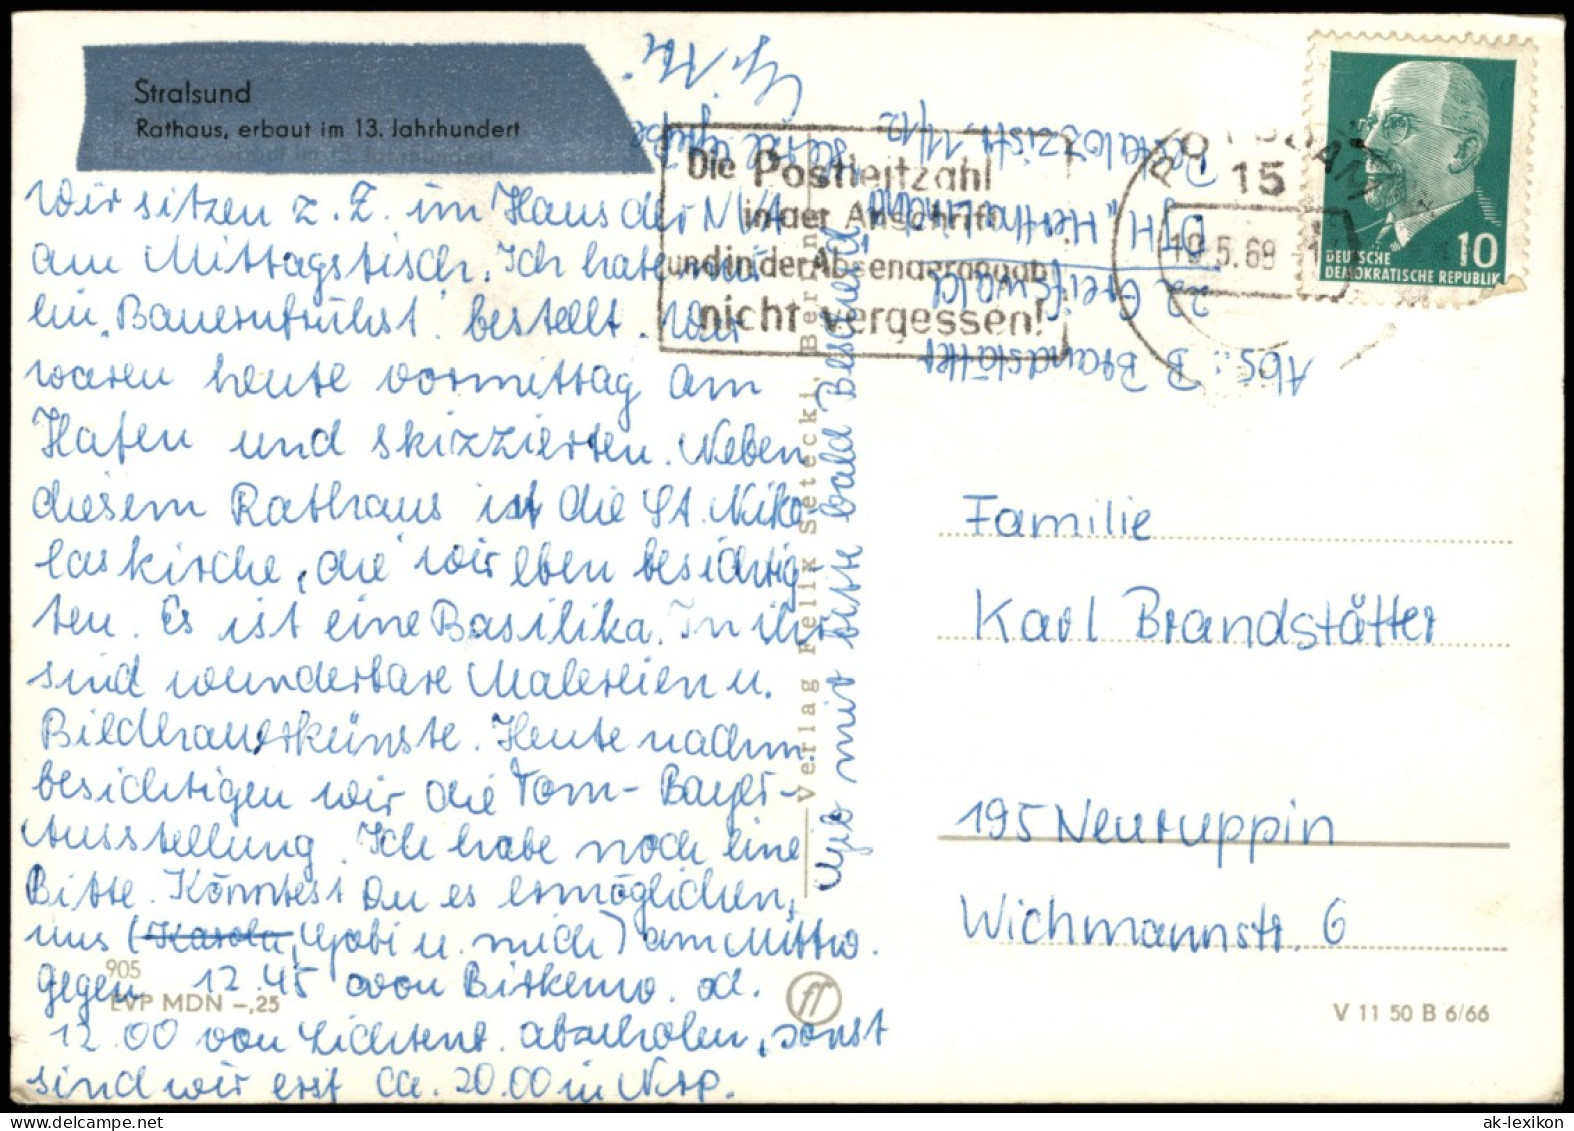 Stralsund
Rathaus, erbaut im 13. Jahrhundert
Wir sitzen z. Z. im Haus der NVA
am Mittagstisch. Ich habe mir
ein „Bauernfrühst." bestellt. Wir
waren heute vormittag am
Hafen und skizzierten. Neben
diesem Rathaus ist die St. Niko-
laskirche, die wir eben besichtig-
ten. Es ist eine Basilika. In ihr
sind wunderbare Malereien u.
Bildhauerkünste. Heute nachm.
besichtigen wir die Tom-Bayer-
Ausstellung. Ich habe noch eine
Bitte. Könntest Du es ermöglichen,
uns (Karola, Gabi u. mich) am Mittw.
gegen 12.45 von Birkenw. od.
12.00 von Lichtenb. abzuholen, sonst
sind wir erst ca. 20.00 in Nrp.
Gib mir bitte bald Bescheid
905
EVP MDN –,25
Verlag Felix Setecki, Berlin
Abs.: B. Brandstätter
22 Greifswald
Pestalozzistr. 11/12
Die Postleitzahl
in der Anschrift
und in der Absenderangabe
nicht vergessen!
POTSDAM
15
19.5.68
DEUTSCHE
DEMOKRATISCHE REPUBLIK
10
Familie
Karl Brandstätter
195 Neuruppin
Wichmannstr. 6
V 11 50 B 6/66
ak-lexikon